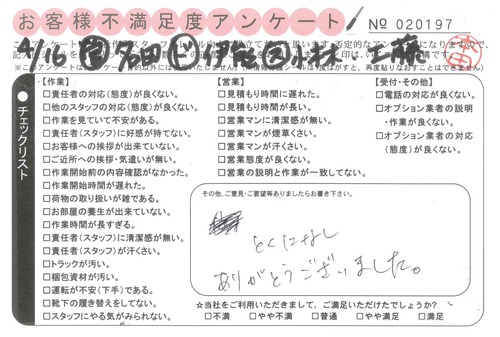 お客様不満足度アンケート
No 020197
【作業】
□責任者の対応(態度)が良くない。
□他のスタッフの対応(態度)が良くない。
□作業を見ていて不安がある。
□責任者(スタッフ)に好感が持てない。
□お客様への挨拶が出来ていない。
□ご近所への挨拶・気遣いが無い。
□作業開始前の内容確認がなかった。
□作業開始時間が遅れた。
□荷物の取り扱いが雑である。
□お部屋の養生が出来ていない。
□作業時間が長すぎる。
□責任者(スタッフ)に清潔感が無い。
□責任者(スタッフ)が汗くさい。
□トラックが汚い。
□梱包資材が汚い。
□運転が不安(下手)である。
□靴下の履き替えをしてない。
□スタッフにやる気がみられない。
【営業】
□見積もり時間に遅れた。
□見積もり時間が長い。
□営業マンに清潔感が無い。
□営業マンが煙草くさい。
□営業マンが汗くさい。
□営業態度が良くない。
□営業の説明と作業が一致してない。
【受付・その他】
□電話の対応が良くない。
□オプション業者の説明
・作業が良くない。
□オプション業者の対応
(態度)が良くない。
チェックリスト
その他、ご意見・ご要望等ありましたらお書き下さい。
とくになし
ありがとうございました。
☆当社をご利用いただきまして、ご満足いただけたでしょうか?
□不満 □やや不満 □普通 □やや満足 □満足